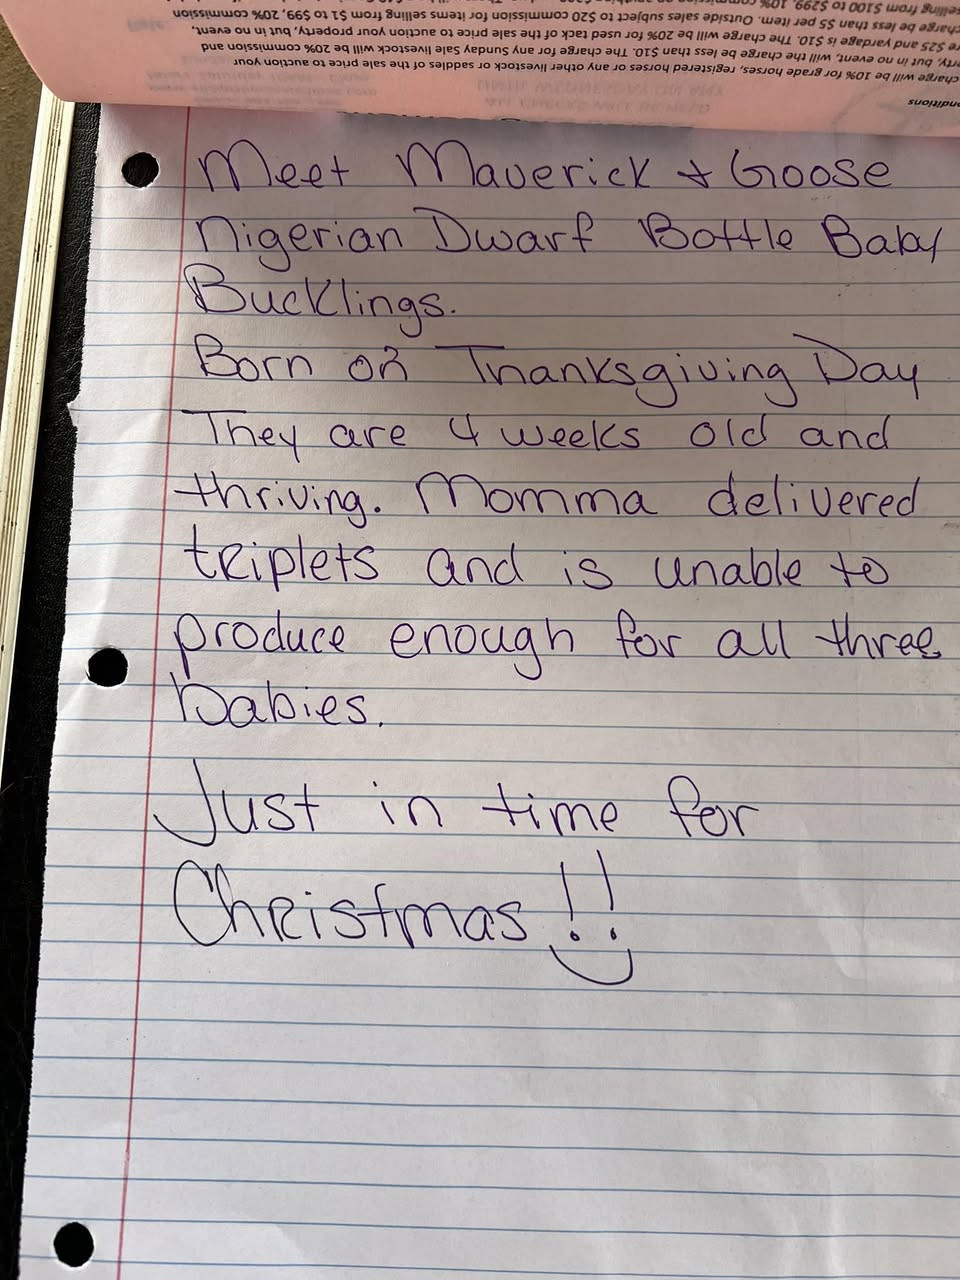 selling from $100 to $299, 10%
charge be less than $5 per item. Outside sales subject to $20 commission for items selling from $1 to $99, 20% commission
are $25 and yardage is $10. The charge will be 20% for used tack of the sale price to auction your property, but in no event,
rty, but in no event, will the charge be less than $10. The charge for any Sunday Sale livestock will be 20% commission and
charge will be 10% for grade horses, registered horses or any other livestock or saddles of the sale price to auction your
onditions
Meet Maverick + Goose
Nigerian Dwarf Bottle Baby
Bucklings.
Born on Thanksgiving Day
They are 4 weeks old and
thriving. Momma delivered
triplets and is unable to
produce enough for all three
babies.
Just in time for
Christmas!!